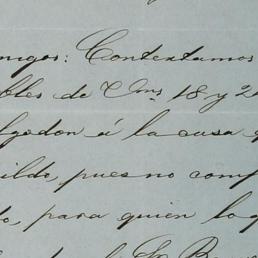 migos: Contestamos
bles de Vms. 18 y 2
lgodon á la casa
ildo, pues no com
do, para quien lo